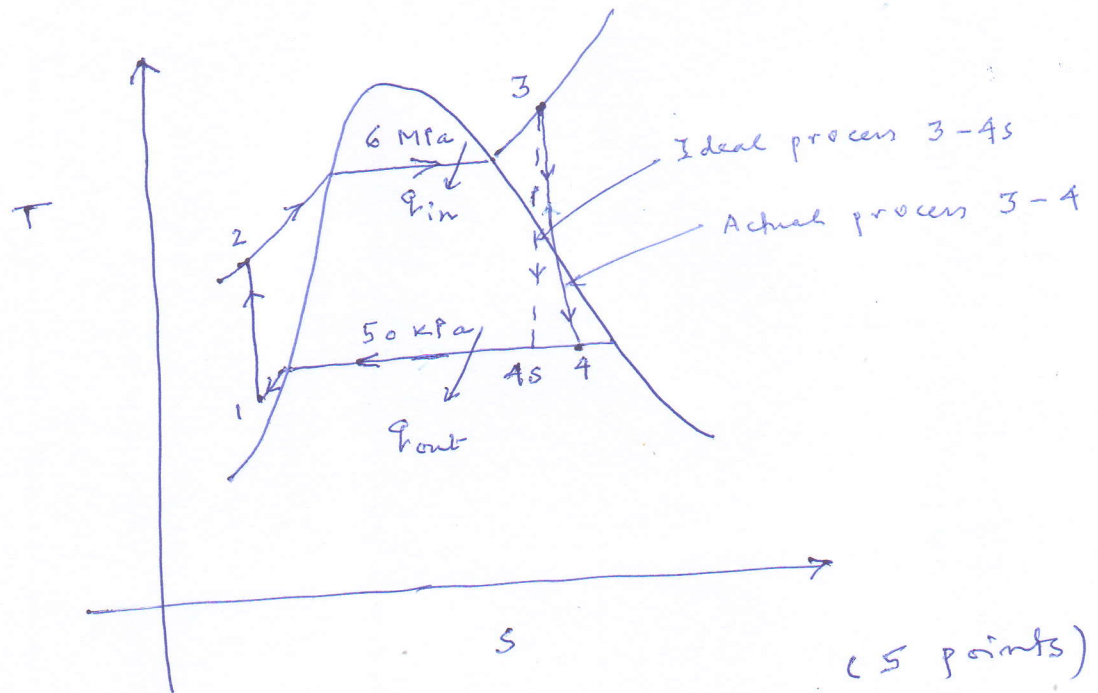 3
6 MPa
Ideal process 3-4s
qin
T
Actual process 3-4
2
50 kPa
4s
4
1
qout
S
(5 points)